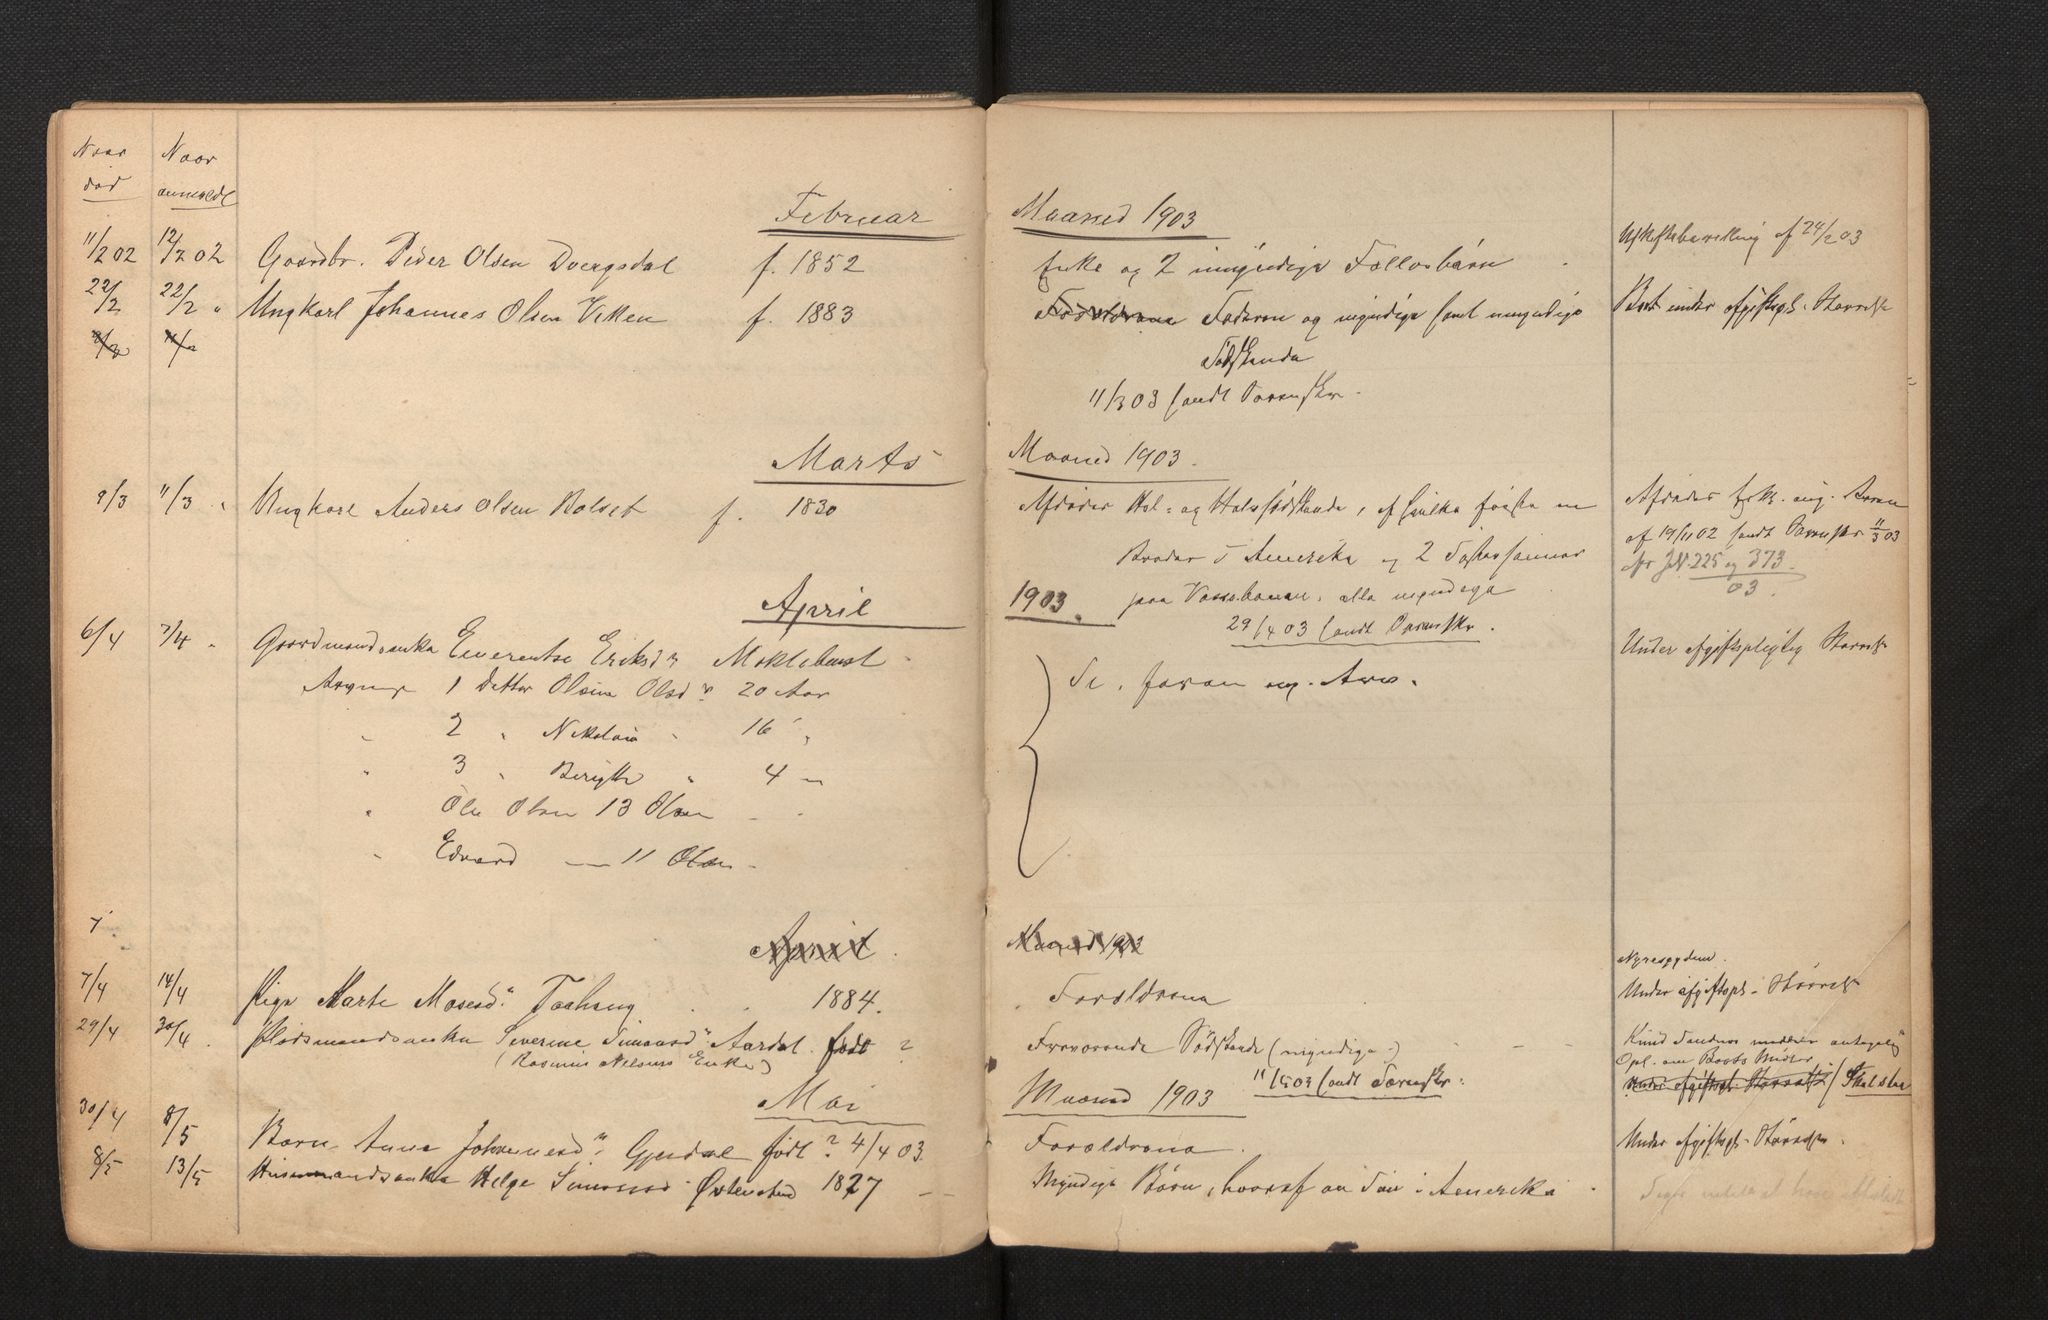 Naar Naar
død anmeldt
Februar
11/2 02 12/2 02 Gaardbr. Peder Olsen Dvergsdal f. 1852
22/2 22/2 " Ungkarl Johannes Olsen Viken f. 1883
Marts
9/3 11/3 " Ungkarl Anders Olsen Bolset f. 1830
April
6/4 7/4 " Gaardmandsenke Emerentse Eriksdr Moklebust
Arvinger 1 Datter Olsine Olsdr 20 Aar
" 2 " Nikolaia " 16 "
" 3 " Berigtte " 4 "
" Ole Olsen 13 Olsen
" Edvard — 11 Olsen
7
April
7/4 14/4 Pige Marte Mosesdr Taahaug 1884.
29/4 30/4 Pladsmandsenke Severine Simonsdr Aardal født ?
(Rasmus Nielsens Enke)
Mai
30/4 8/5 Barn Anna Johannesdr Gjerdal født ? 4/4 03
8/5 13/5 Husmandsenke Helge Simonsd Østenstad 1827
Maaned 1903
Enke og 2 umyndige Fællesbørn
Forældrene Faderen og myndige samt umyndige
Sødskende
11/3 03 sendt Sorenskr.
Maaned 1903.
Afdødes Hel- og Halvsødskende, af hvilke første en
Broder i Amerika og 2 Søstersønner
1903. paa Vossebanen, alle myndige
29/4 03 sendt Sorenskr.
Se foran ang. Arv.
Maaned 1903
Forældrene
Fraværende Sødskende (myndige.)
11/5 03 sendt Sorenskr.
Maaned 1903
Forældrene
Myndige Børn, hvoraf en Søn i Amerika
Uskiftebevilling af 24/2 03
Bo under afgiftspl. Størrelse
Afdødes Erkl. ang. Arven
af 19/11 02 sendt Sorenskr 11/3 03
cfr JN. 225 og 373
03.
Under afgiftspligtig Størrelse
Nyresygdom.
Under afgiftspl. Størrelse
Knud Sandnes meddeler antagelig
Opl. om Boets Midler
Under afgiftspl. Størrelse / Skolelær
Under afgiftspl. Størrelse.